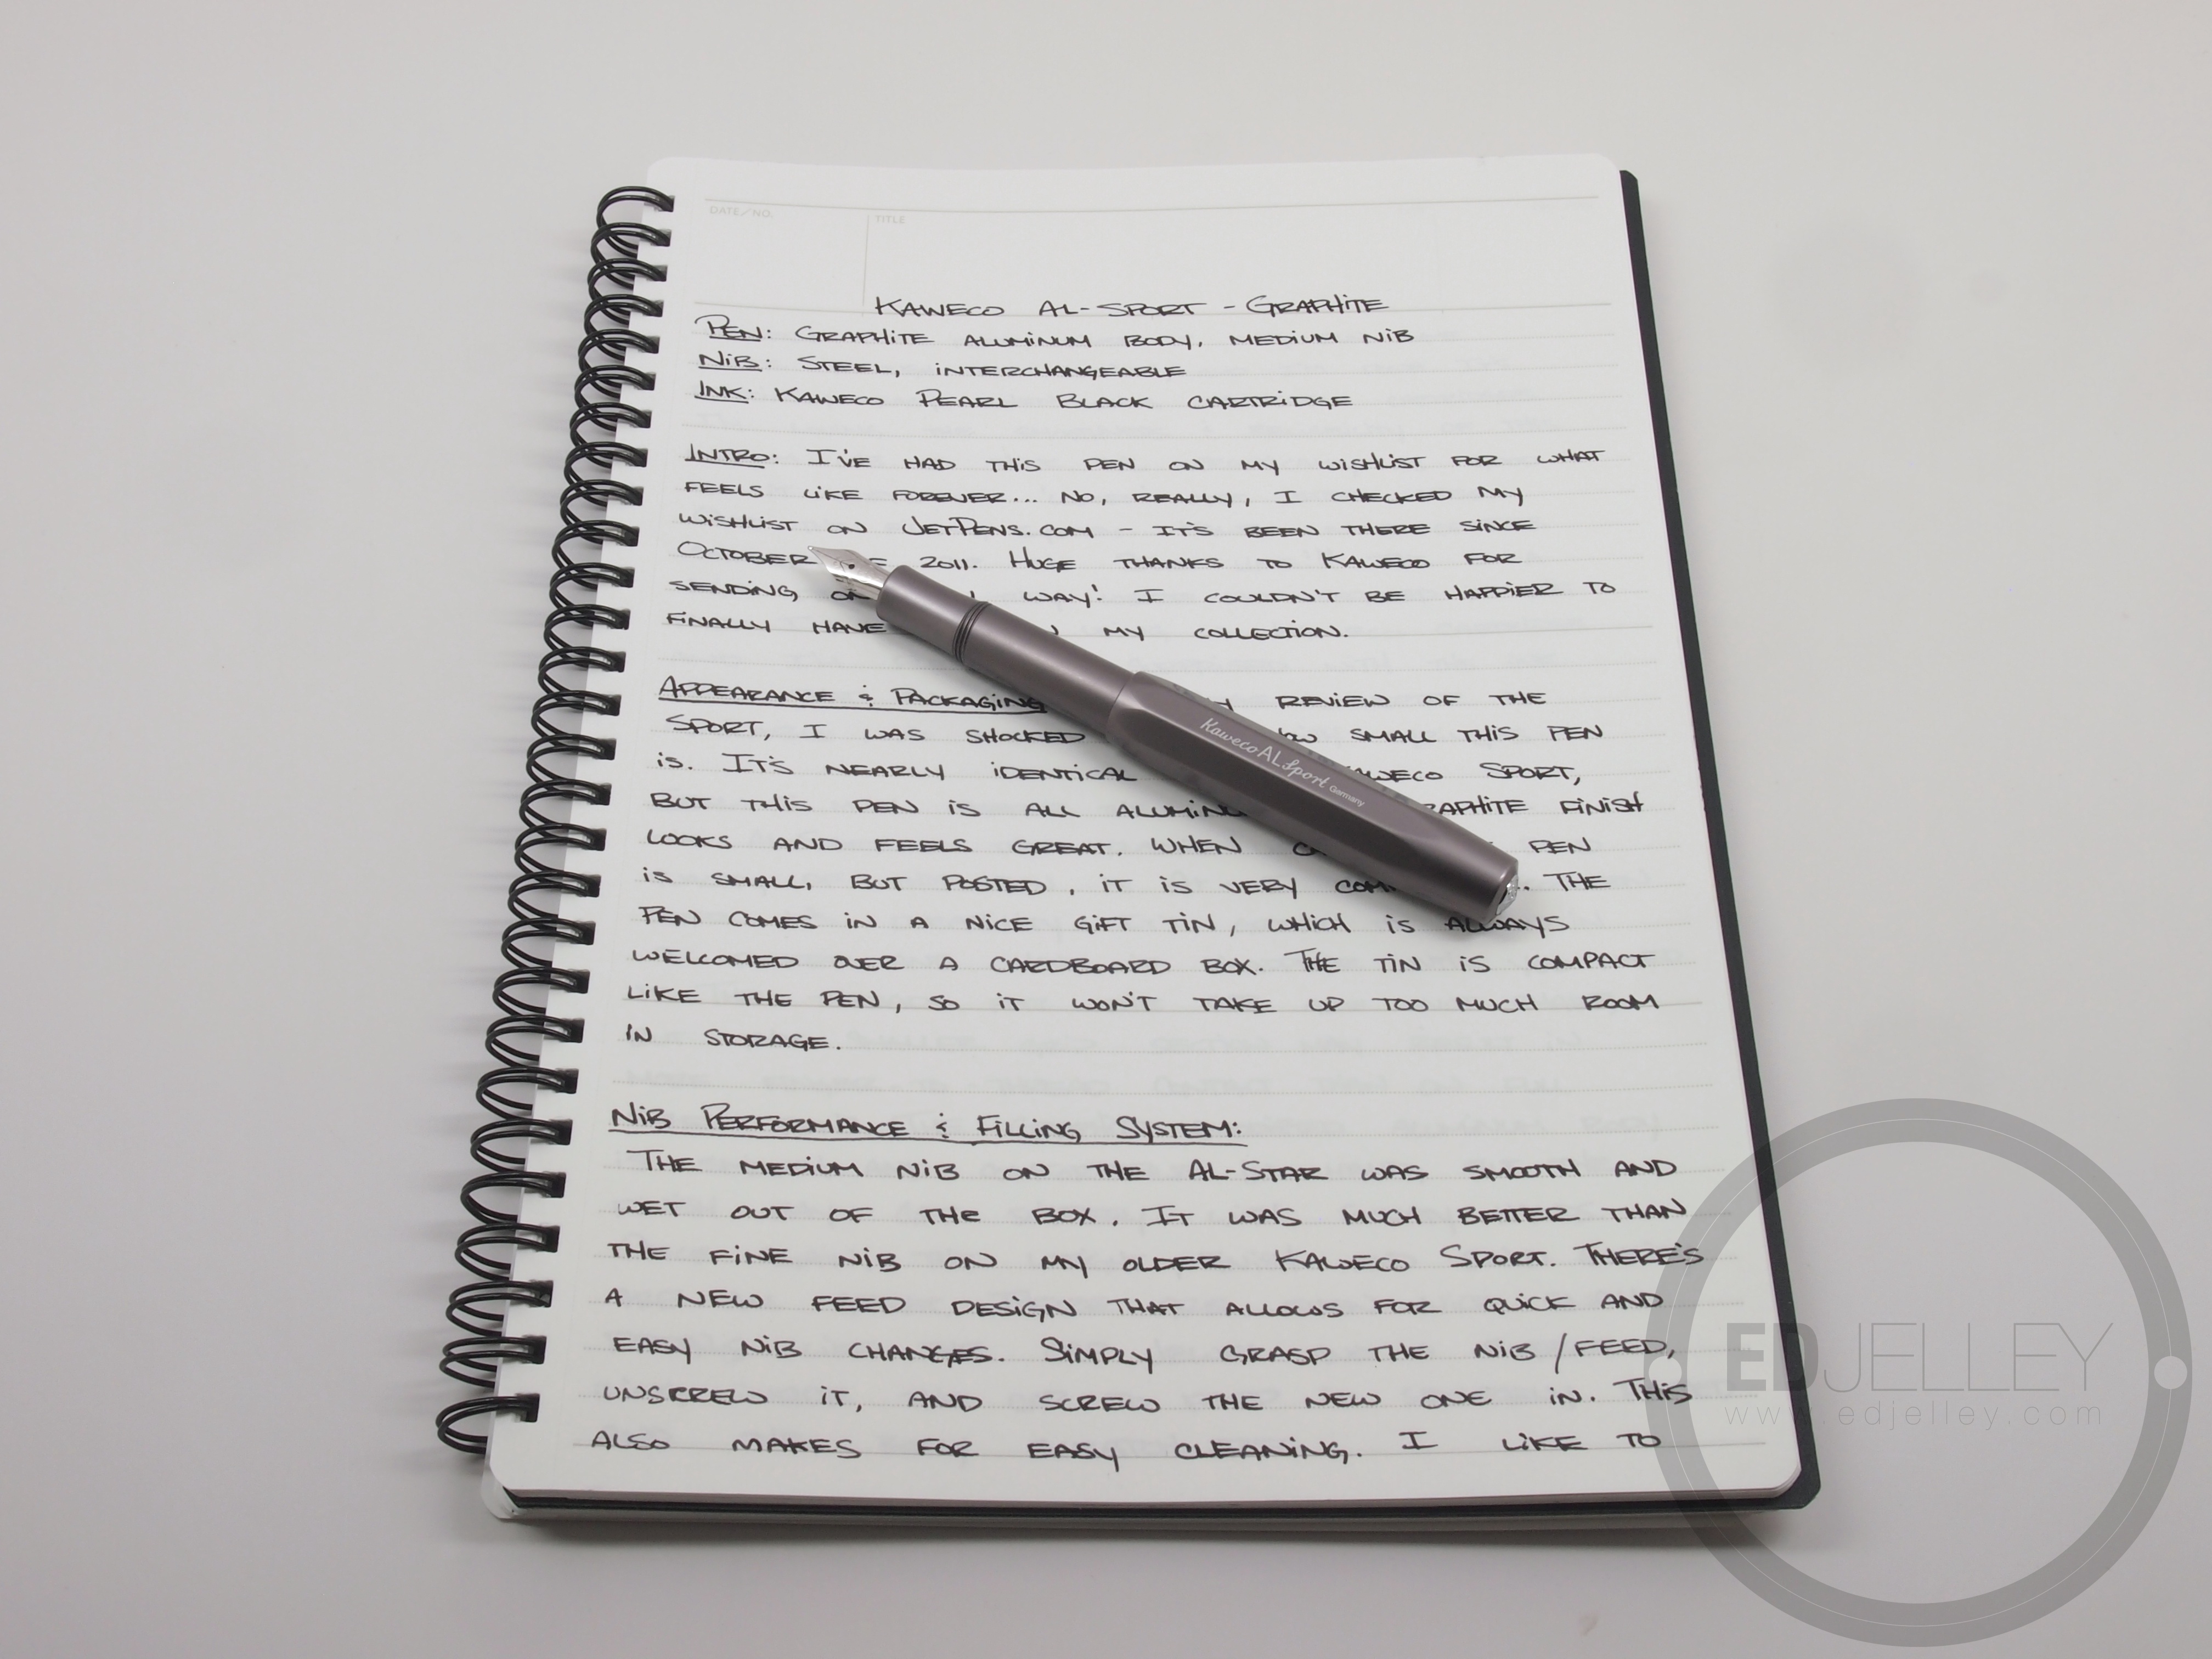 DATE/NO. TITLE
KAWECO AL-SPORT - GRAPHITE
PEN: GRAPHITE ALUMINUM BODY, MEDIUM NIB
NIB: STEEL, INTERCHANGEABLE
INK: KAWECO PEARL BLACK CARTRIDGE
INTRO: I'VE HAD THIS PEN ON MY WISHLIST FOR WHAT
FEELS LIKE FOREVER... NO, REALLY, I CHECKED MY
WISHLIST ON JETPENS.COM - IT'S BEEN THERE SINCE
OCTOBER 2011. HUGE THANKS TO KAWECO FOR
SENDING WAY! I COULDN'T BE HAPPIER TO
FINALLY HAVE MY COLLECTION.
APPEARANCE & PACKAGING REVIEW OF THE
SPORT, I WAS SHOCKED SMALL THIS PEN
IS. IT'S NEARLY IDENTICAL KAWECO SPORT,
BUT THIS PEN IS ALL ALUMINUM GRAPHITE FINISH
LOOKS AND FEELS GREAT. WHEN PEN
IS SMALL, BUT POSTED, IT IS VERY THE
PEN COMES IN A NICE GIFT TIN, WHICH IS ALWAYS
WELCOMED OVER A CARDBOARD BOX. THE TIN IS COMPACT
LIKE THE PEN, SO IT WON'T TAKE UP TOO MUCH ROOM
IN STORAGE.
NIB PERFORMANCE & FILLING SYSTEM:
THE MEDIUM NIB ON THE AL-STAR WAS SMOOTH AND
WET OUT OF THE BOX. IT WAS MUCH BETTER THAN
THE FINE NIB ON MY OLDER KAWECO SPORT. THERE'S
A NEW FEED DESIGN THAT ALLOWS FOR QUICK AND
EASY NIB CHANGES. SIMPLY GRASP THE NIB/FEED,
UNSCREW IT, AND SCREW THE NEW ONE IN. THIS
ALSO MAKES FOR EASY CLEANING. I LIKE TO
Kaweco AL Sport Germany
EDJELLEY
www.edjelley.com